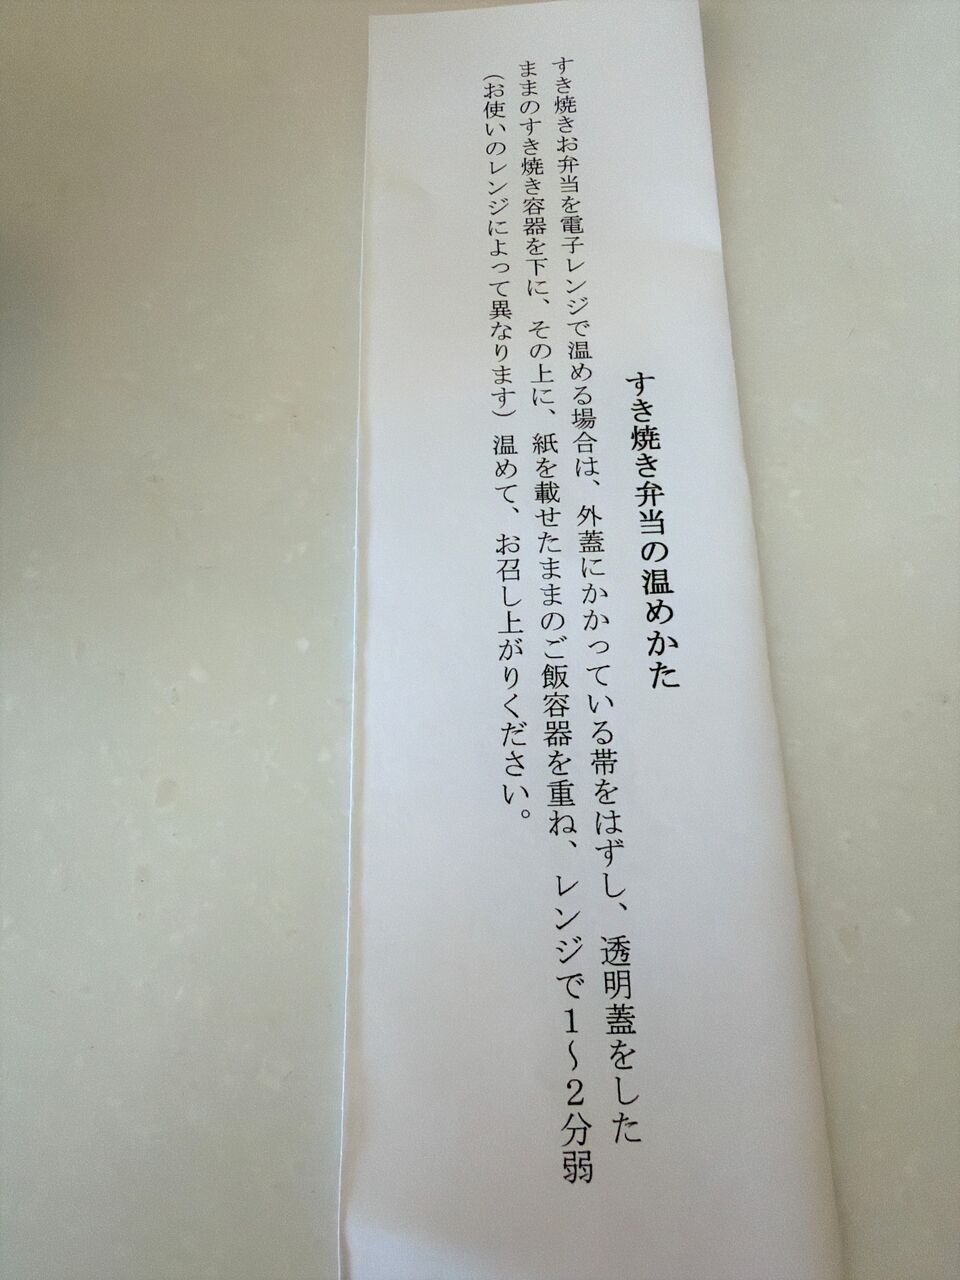 すき焼き弁当の温めかた
すき焼きお弁当を電子レンジで温める場合は、外蓋にかかっている帯をはずし、透明蓋をした
ままのすき焼き容器を下に、その上に、紙を載せたままのご飯容器を重ね、レンジで１～２分弱
（お使いのレンジによって異なります）温めて、お召し上がりください。